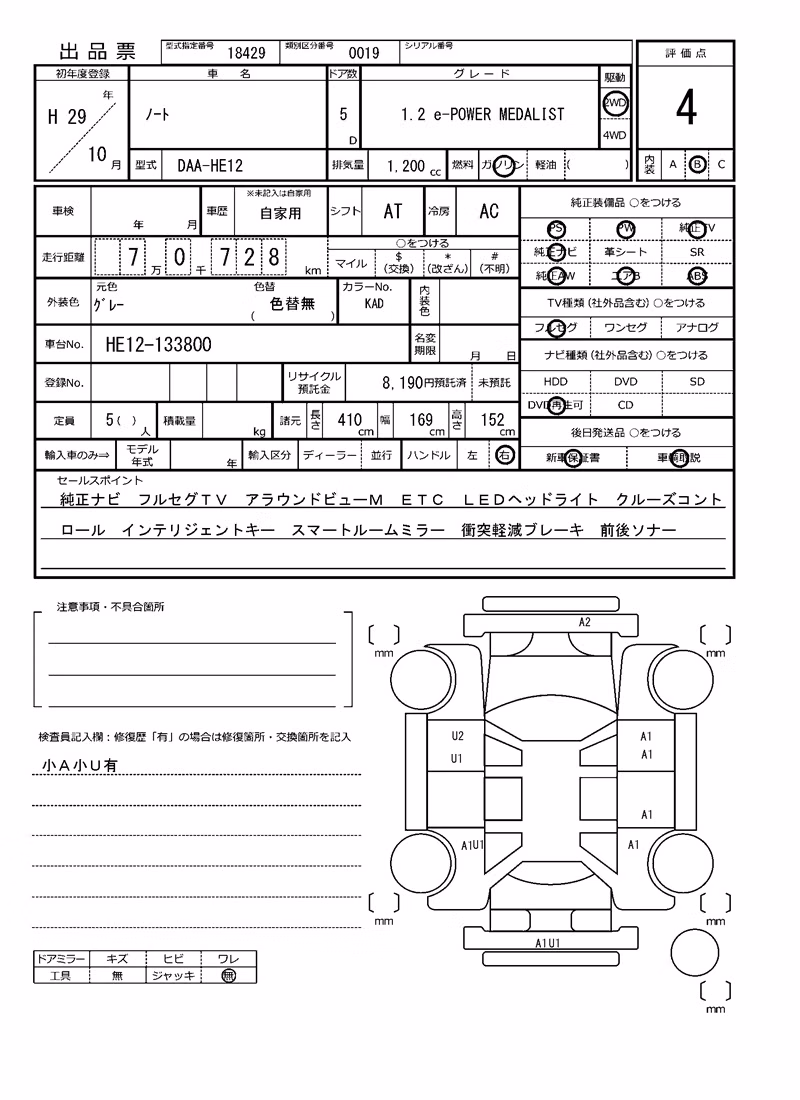 出品票 型式指定番号 18429 類別区分番号 0019 シリアル番号
評価点
4
内装 A B C
初年度登録 車名 ドア数 グレード 駆動
H 29 年 10 月
ノート
5 D
1.2 e-POWER MEDALIST
2WD
4WD
型式 DAA-HE12 排気量 1,200 cc 燃料 ガソリン 軽油 ( )
車検 年 月 車歴 ※未記入は自家用 自家用 シフト AT 冷房 AC
走行距離 7 万 0 千 7 2 8 km
○をつける
マイル $ (交換) * (改ざん) # (不明)
外装色 元色 グレー 色替 ( 色替無 ) カラーNo. KAD 内装色
車台No. HE12-133800 名変期限 月 日
登録No. リサイクル預託金 8,190円預託済 未預託
定員 5 ( ) 人 積載量 kg 諸元 長さ 410 cm 幅 169 cm 高さ 152 cm
輸入車のみ⇒ モデル年式 年 輸入区分 ディーラー 並行 ハンドル 左 右
純正装備品 ○をつける
PS PW 純正TV
純正ナビ 革シート SR
純正AW エアB ABS
TV種類(社外品含む)○をつける
フルセグ ワンセグ アナログ
ナビ種類(社外品含む)○をつける
HDD DVD SD
DVD再生可 CD
後日発送品 ○をつける
新車保証書 車輌取説
セールスポイント
純正ナビ フルセグTV アラウンドビューM ETC LEDヘッドライト クルーズコント
ロール インテリジェントキー スマートルームミラー 衝突軽減ブレーキ 前後ソナー
注意事項・不具合箇所
検査員記入欄：修復歴「有」の場合は修復箇所・交換箇所を記入
小A小U有
ドアミラー キズ ヒビ ワレ
工具 無 ジャッキ 無
A2
mm mm
U2 A1
U1 A1
A1
A1U1 A1
mm mm
A1U1
mm